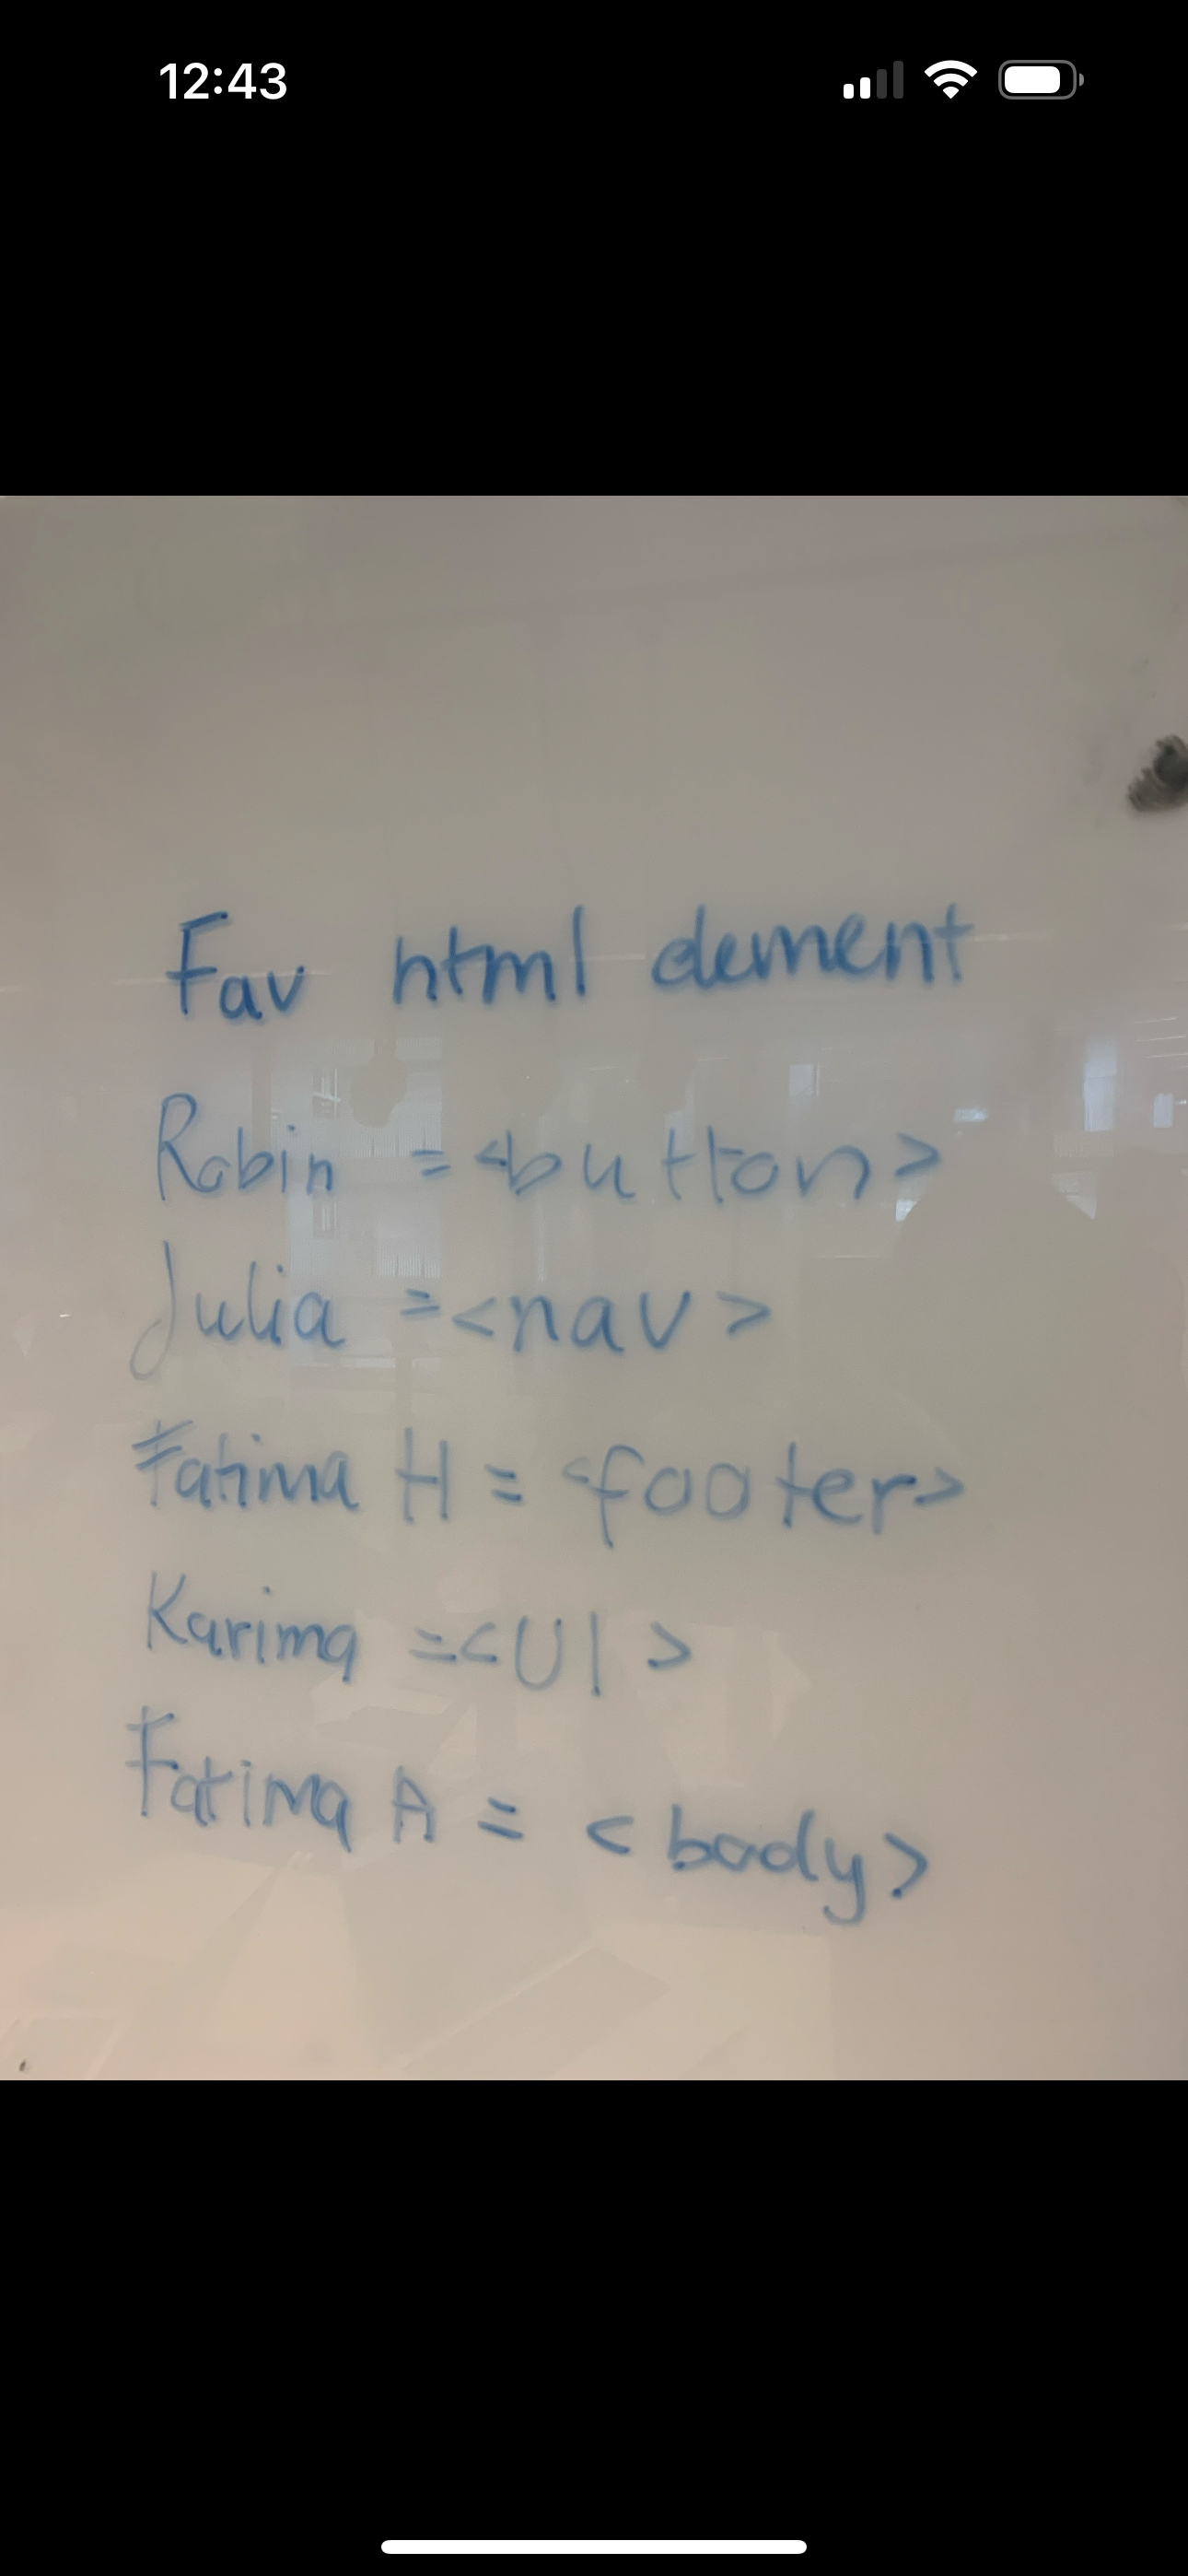 12:43
Fav html element
Robin = <button>
Julia = <nav>
Fatima H = <footer>
Karima = <Ul>
Fatima A = <body>